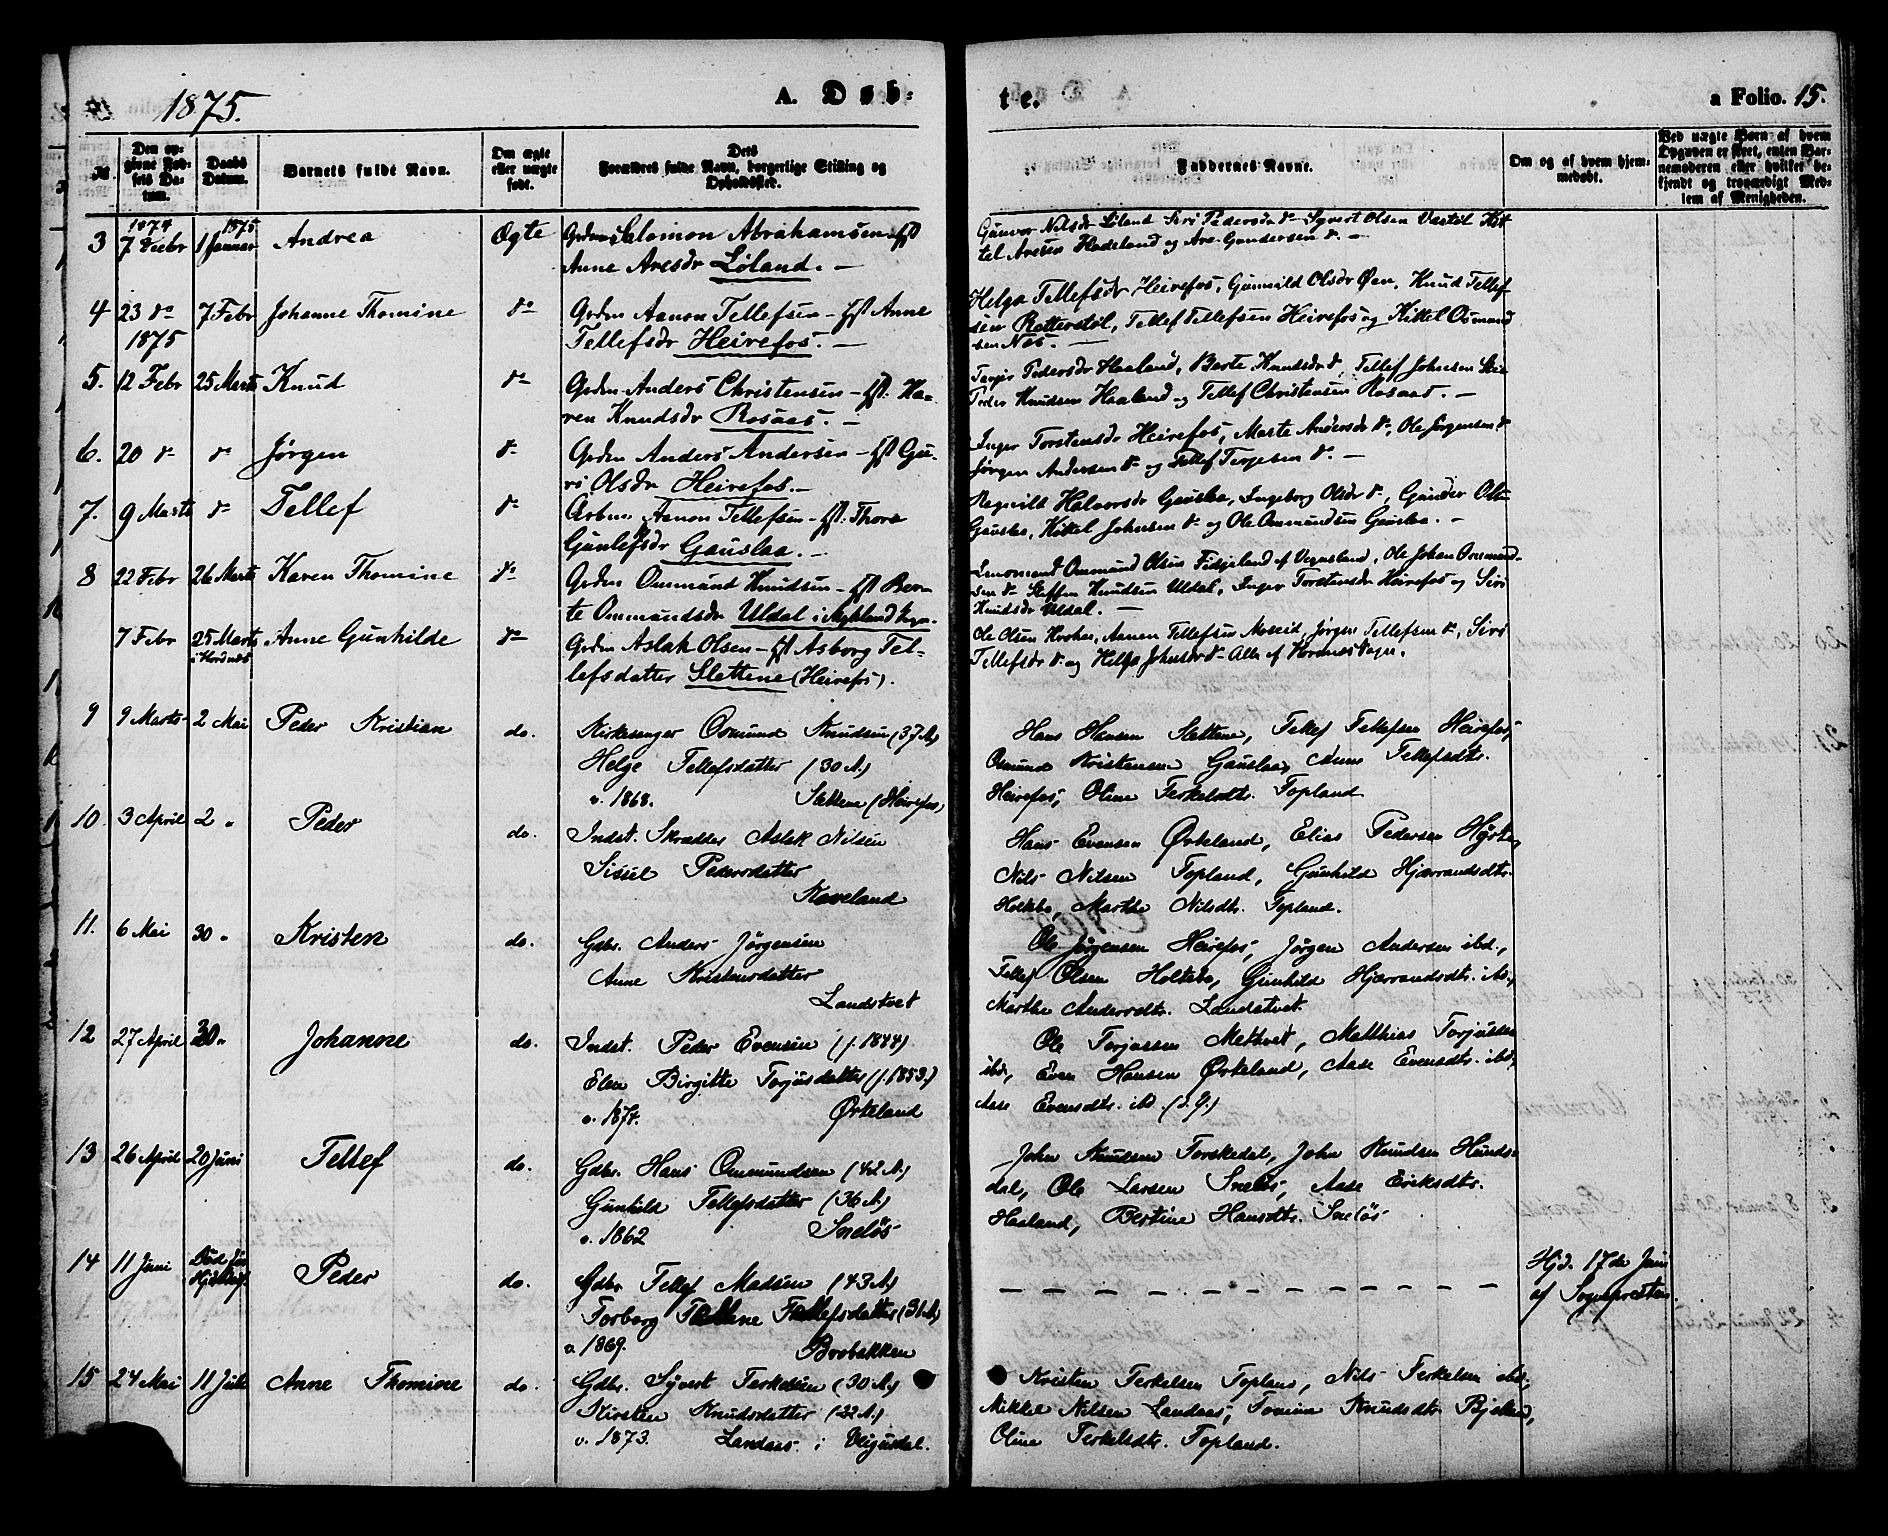 1875.
A. Døb-
te.
a Folio. 15.
№
Den op-
givne Fød-
sels Da-
tum.
Daabs
Datum.
Barnets fulde Navn.
Om ægte
eller uægte
født.
Dets
Forældres fulde Navn, borgerlige Stilling og
Opholdssted.
Faddernes Navne.
Om og af hvem hjem-
medøbt.
Ved uægte Barn af hvem
Opgaven er skeet, enten Bar-
nemoderen eller hvilket be-
kjendt og troværdigt Med-
lem af Menigheden.
1874 1875
3 7 Debr 1 Januar Andrea Ægte Grdm Salomon Abrahamsen - Hst
Anne Aresdr Løland. —
Gunvor Nilsdr Løland Siri Pedersdr do Syvert Olsen Vastøl Kit-
tel Aresen Hodeland og Are Gundersen do —
4 23 do 7 Febr Johanne Thomine do Grdm Aanon Tellefsen - Hst Anne
Tellefsdr Heirefos. —
Helga Tellefsdr Heirefos, Gunnild Olsdr Øen, Knud Tellef-
sen Rotterstøl, Tellef Tellefsen Heirefos og Kittel Osmund
sen Næs. —
1875
5. 12 Febr 25 Marts Knud do Grdm Anders Christensen - Hst. Ka-
ren Knudsdr Rosaas. —
Pedersdr Haaland, Berte Knudsdr do, Tellef Johnsen
Peder Knudsen Haaland og Tellef Christensen Rosaas. —
6. 20 do do Jørgen do Grdm Anders Andersen - Hst Gu-
ri Olsdr Heirefos. —
Inger Torstensdr Heirefos, Marte Andersdr do, Ole Jørgensen do
Jørgen Andersen do og Tellef Terjesen do. —
7. 9 Marts do Tellef do Arbm. Aanon Tellefsen - Hst. Thore
Gunlefsdr Gauslaa. —
Ragnild Halvorsdr Gauslaa, Ingeborg Olsdr do, Gunder Ols
Gauslaa, Kittel Johnsen do og Ole Ommundsen Gauslaa. —
8 22 Febr 26 Marts Karen Thomine do Grdm Ommund Knudsen - Hst Ber-
te Ommundsdr Uldal i Mykland
Ommund Olsen Fidjeland af Vegusland, Ole Johan Ommund-
sen do Steffen Knudsen Uldal, Inger Torstensdr Heirefos og Siri
Knudsdr Uldal. —
7 Febr 25 Marts Anne Gunhilde do Grdm Aslak Olsen - Hst Asborg Tel-
i Vordnes lefsdatter Slettene (Heirefos).
Ole Olsen Aanen Tellefsen Jørgen Tellefsen do, Siri
Tellefsdr do og Helga Johnsdr do Alle af
9 9 Marts 2 Mai Peder Kristian do. Kirkesanger Osmund Knudsen (37 A.)
Helge Tellefsdatter (30 A.)
v. 1868. Slettene (Heirefos)
Hans Hansen Slettene, Tellef Tellefsen Heirefos,
Osmund Kristensen Gauslaa, Anne Tellefsdtr.
Heirefos, Oline Terkelsdtr. Topland
10. 3 April 2 " Peder do. Indst. Skrædder Aslak Nilsen
Sissel Pedersdatter
Kaveland
Hans Evensen Ørkeland, Elias Pedersen
Nils Nilsen Topland, Gunhild Hjærrandsdtr.
Holtebo, Marthe Nilsdtr. Topland.
11. 6 Mai 30 " Kristen do. Gdbr. Anders Jørgensen
Anne Kristensdatter
Landstvet
Ole Jørgensen Heirefos, Jørgen Andersen ibd.,
Tellef Olsen Holtebo, Gunhild Hjærrandsdtr. ibd,
Marthe Andersdtr. Landstvet.
12 27 April 30 " Johanne do. Indst. Peder Evensen (f. 1844)
Elen Birgitte Torjusdatter (f. 1853.)
v. 1874. Ørkeland
Ole Torjussen Metveit, Matthias Torjussen
ibd, Even Hansen Ørkeland, Aase Evensdtr. ibd,
Aase Evensdtr. ibd. (d. y.)
13 26 April 20 Juni Tellef do. Gdbr. Hans Ommundsen (42 A.)
Gunhild Tellefsdatter (36 A.)
v. 1862 Sneløs
John Knudsen Torskedal, John Knudsen Hunds-
dal, Ole Larsen Sneløs, Aase Eriksdtr.
Haaland, Bertine Hansdtr. Sneløs
14 11 Juni Død før Peder do. Gdbr. Tellef Madsen (43 A.)
Torborg Tellefsdatter (31 A.)
v. 1869. Bosbakken
— — — — — — — — — —
Hjd. 17de Juni
af Sognepresten.
15 24 Mai 11 Juli Anne Thomine do. Gdbr. Syvert Terkelsen (30 A.)
Kirsten Knudsdatter (22 A.)
v. 1873. Landaas i Vegusdal.
Kristen Terkelsen Topland, Nils Terkelsen ibd,
Mikkel Nilsen Landaas, Tomine Knudsdtr.
Oline Terkelsdtr. Topland.